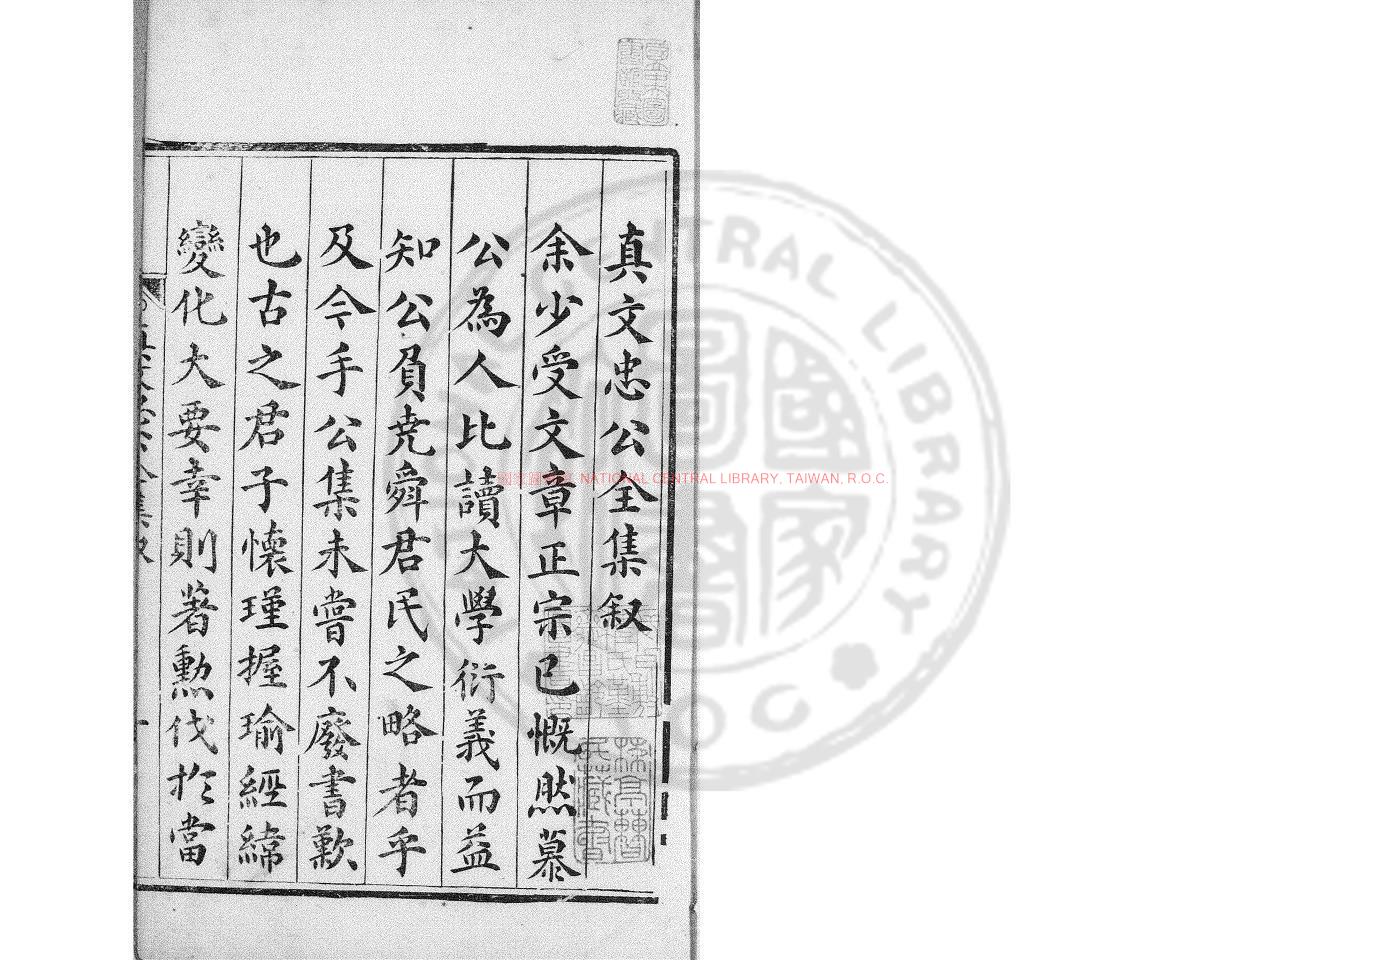 真文忠公全集叙
余少受文章正宗已慨然慕
公為人比讀大學衍義而益
知公負尭舜君民之略者乎
及今手公集未嘗不廢書歎
也古之君子懷瑾握瑜經緯
變化大要幸則著勲伐於當
國家圖書館 NATIONAL CENTRAL LIBRARY, TAIWAN, R.O.C.
CENTRAL LIBRARY